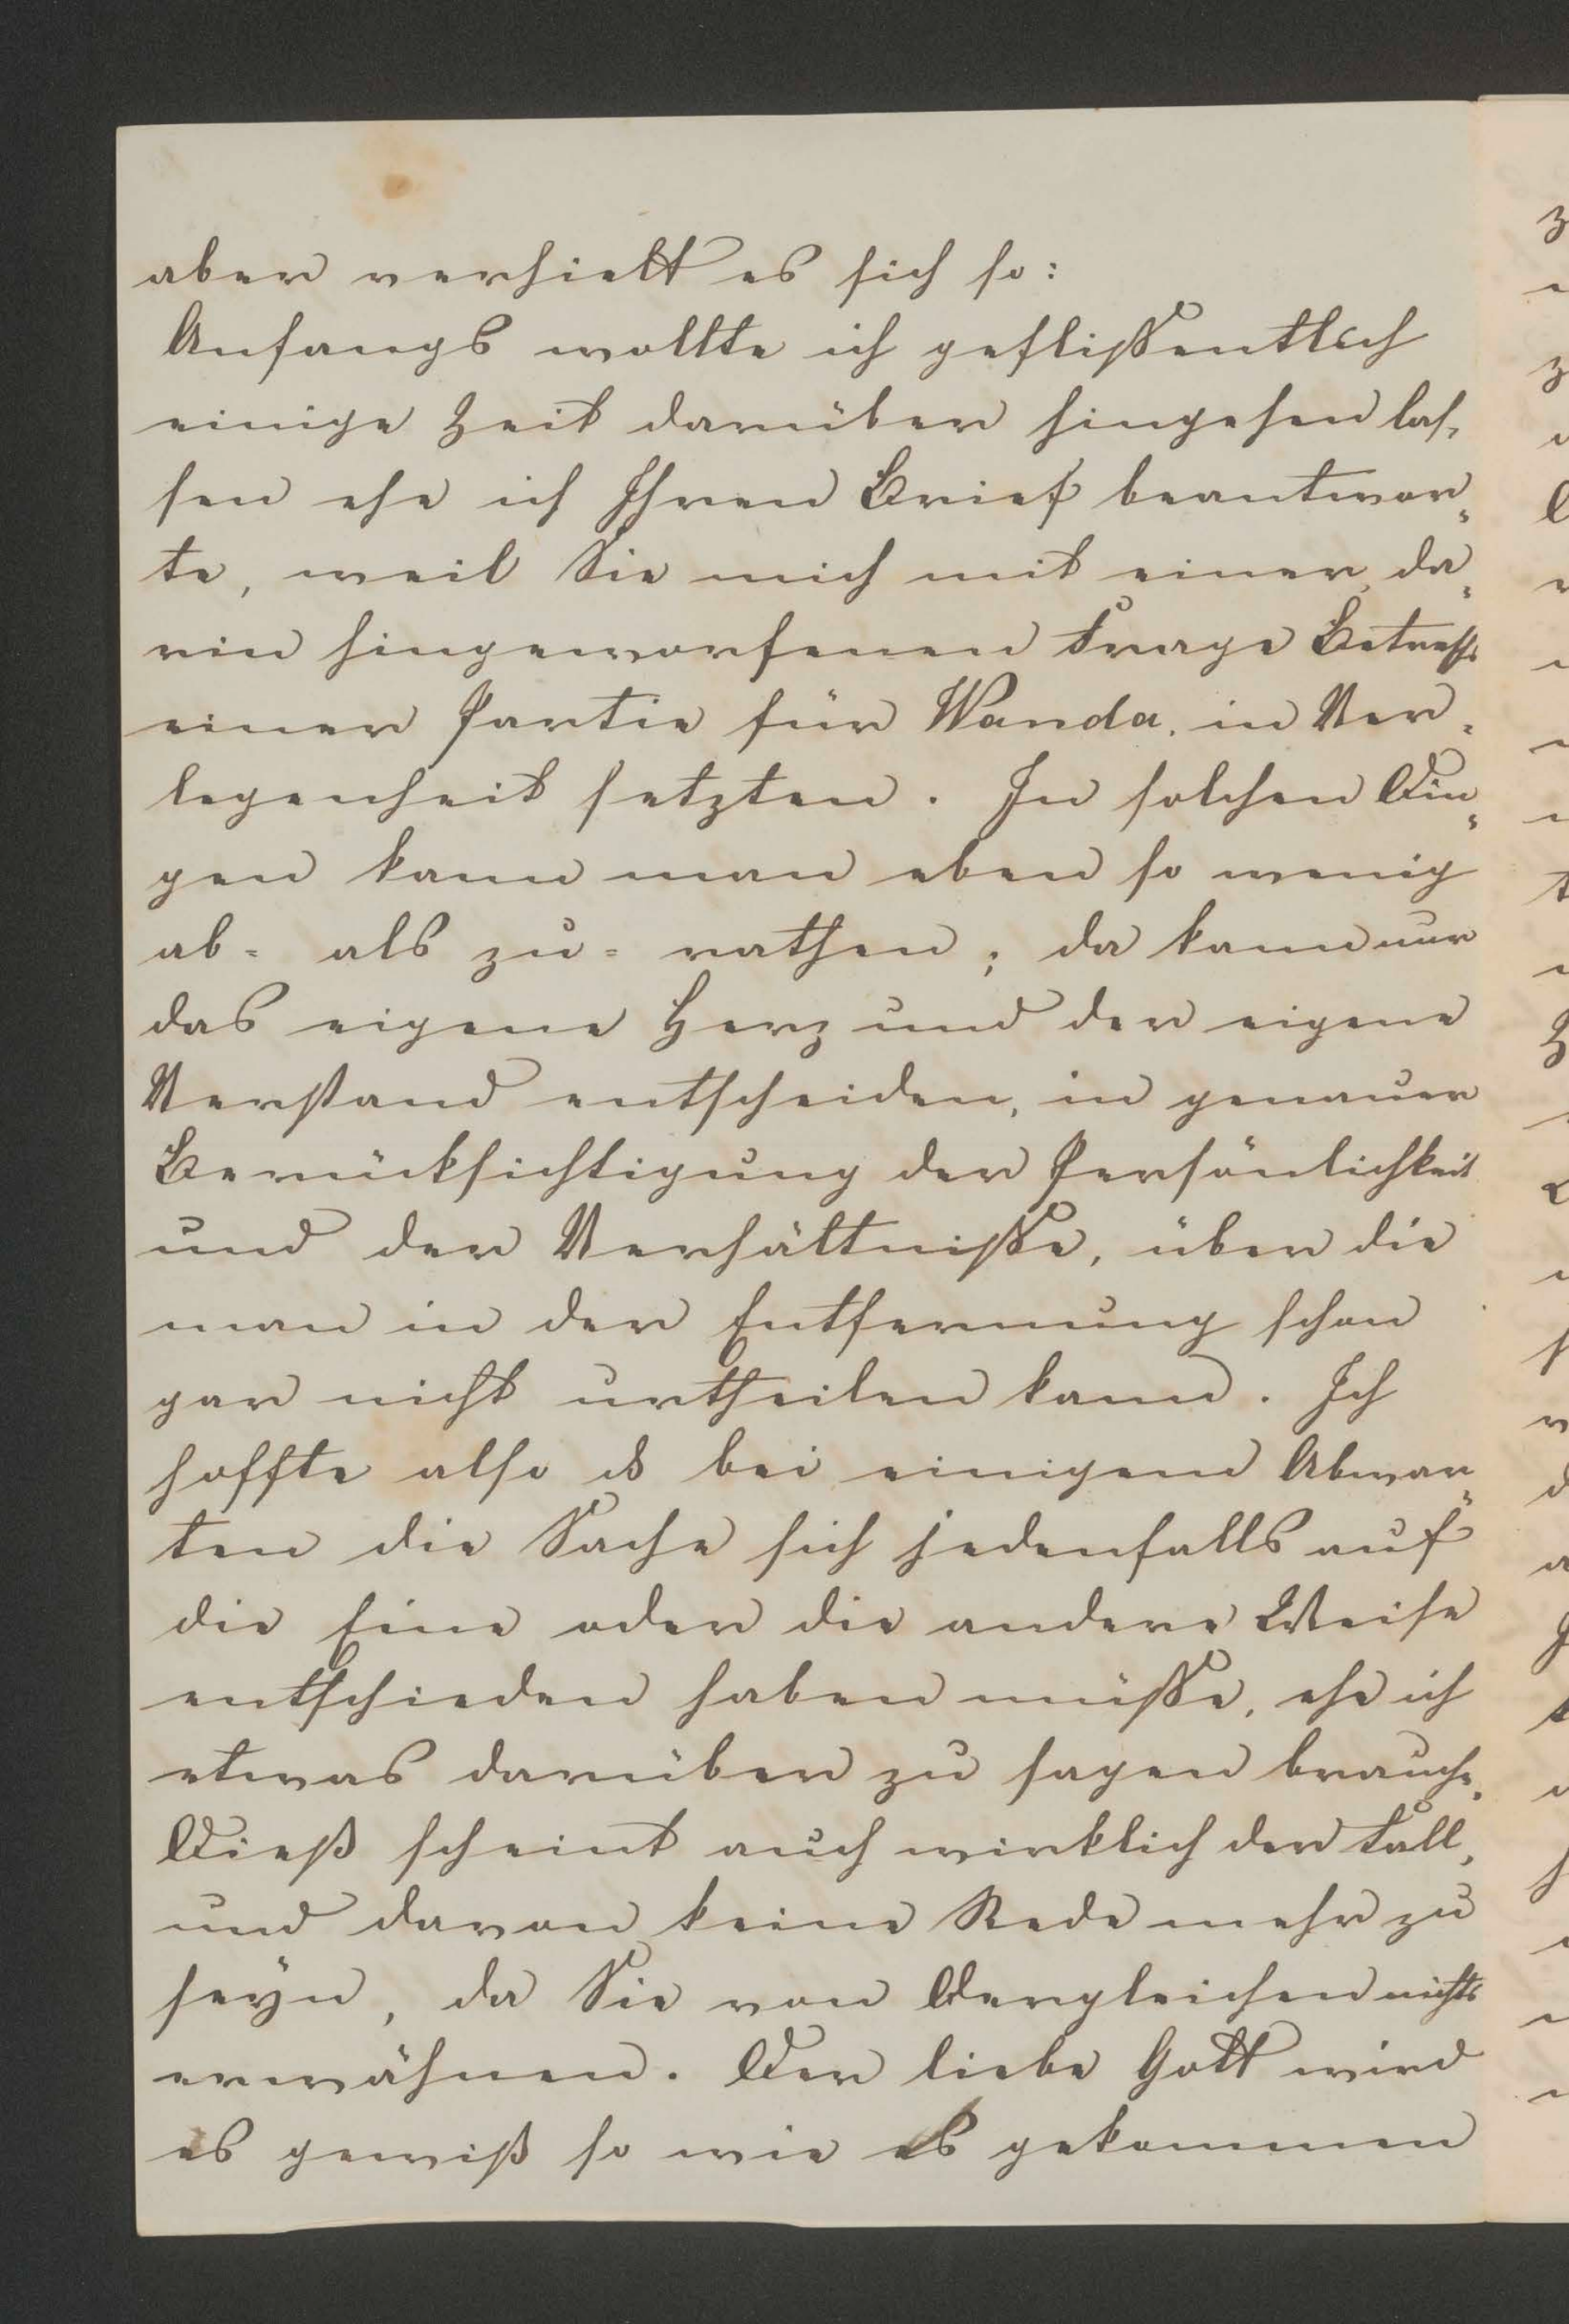 aber verhielt es sich so:
Anfangs wollte ich geflißentlich
einige Zeit darüber hingehen las=
sen ehe ich Ihren Brief beantwor=
te, weil Sie mich mit einer, da=
rin hingeworfenen Frage Betreffs
einer Partie für Wanda, in Ver=
legenheit setzten. In solchen Din=
gen kann man eben so wenig
ab= als zu= rathen; da kann nur
das eigene Herz und der eigene
Verstand entscheiden, in genauer
Berücksichtigung der Persönlichkeit
und der Verhältniße, über die
man in der Entfernung schon
gar nicht urtheilen kann. Ich
hoffte also es bei einigem Abwar=
ten die Sache sich jedenfalls auf
die Eine oder die andere Weise
entschieden haben müße, ehe ich
etwas darüber zu sagen brauche.
Dieß scheint auch wirklich der Fall,
und davon keine Rede mehr zu
seyn, da Sie von Dergleichen nichts
erwähnen. Der liebe Gott wird
es gewiß so wie es gekommen